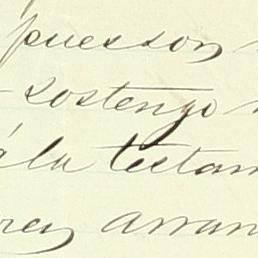 puesson
sostengo
á la testam
rey arran